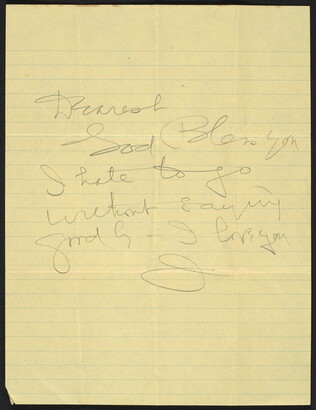 Dearest
God Bless you
I hate to go
without saying
good by - I love you
J